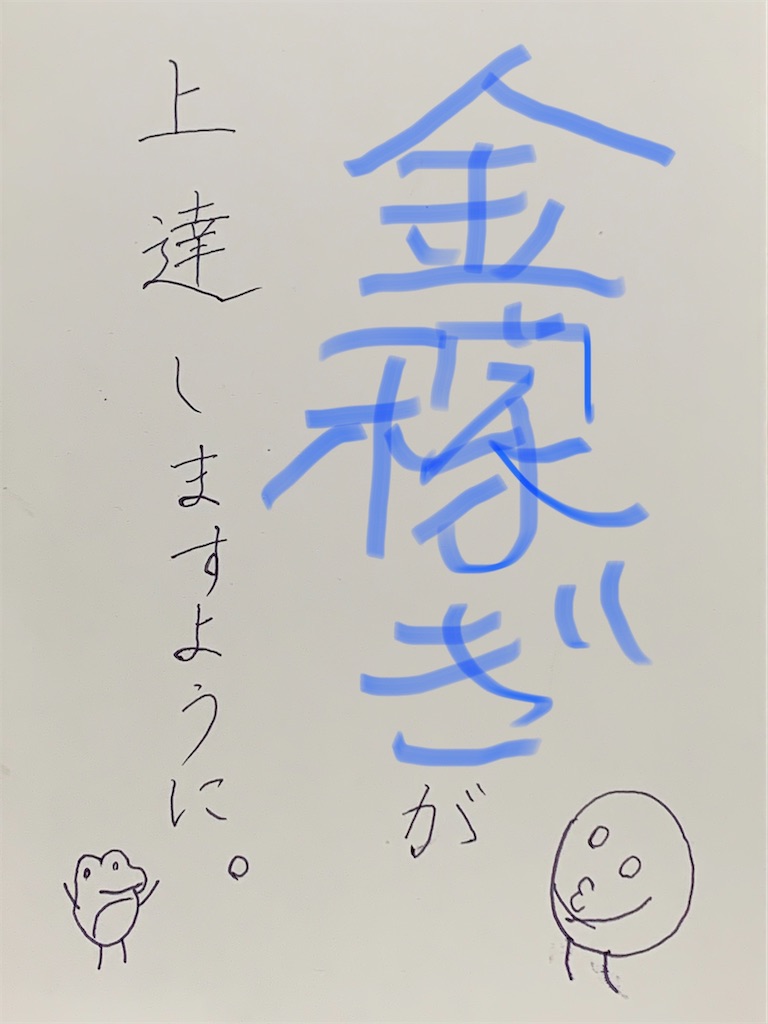 金稼ぎが
上達しますように。